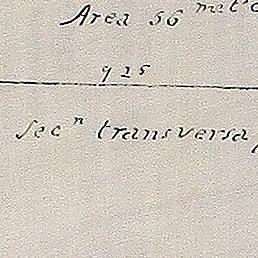 Area 56
925
Secⁿ transversa